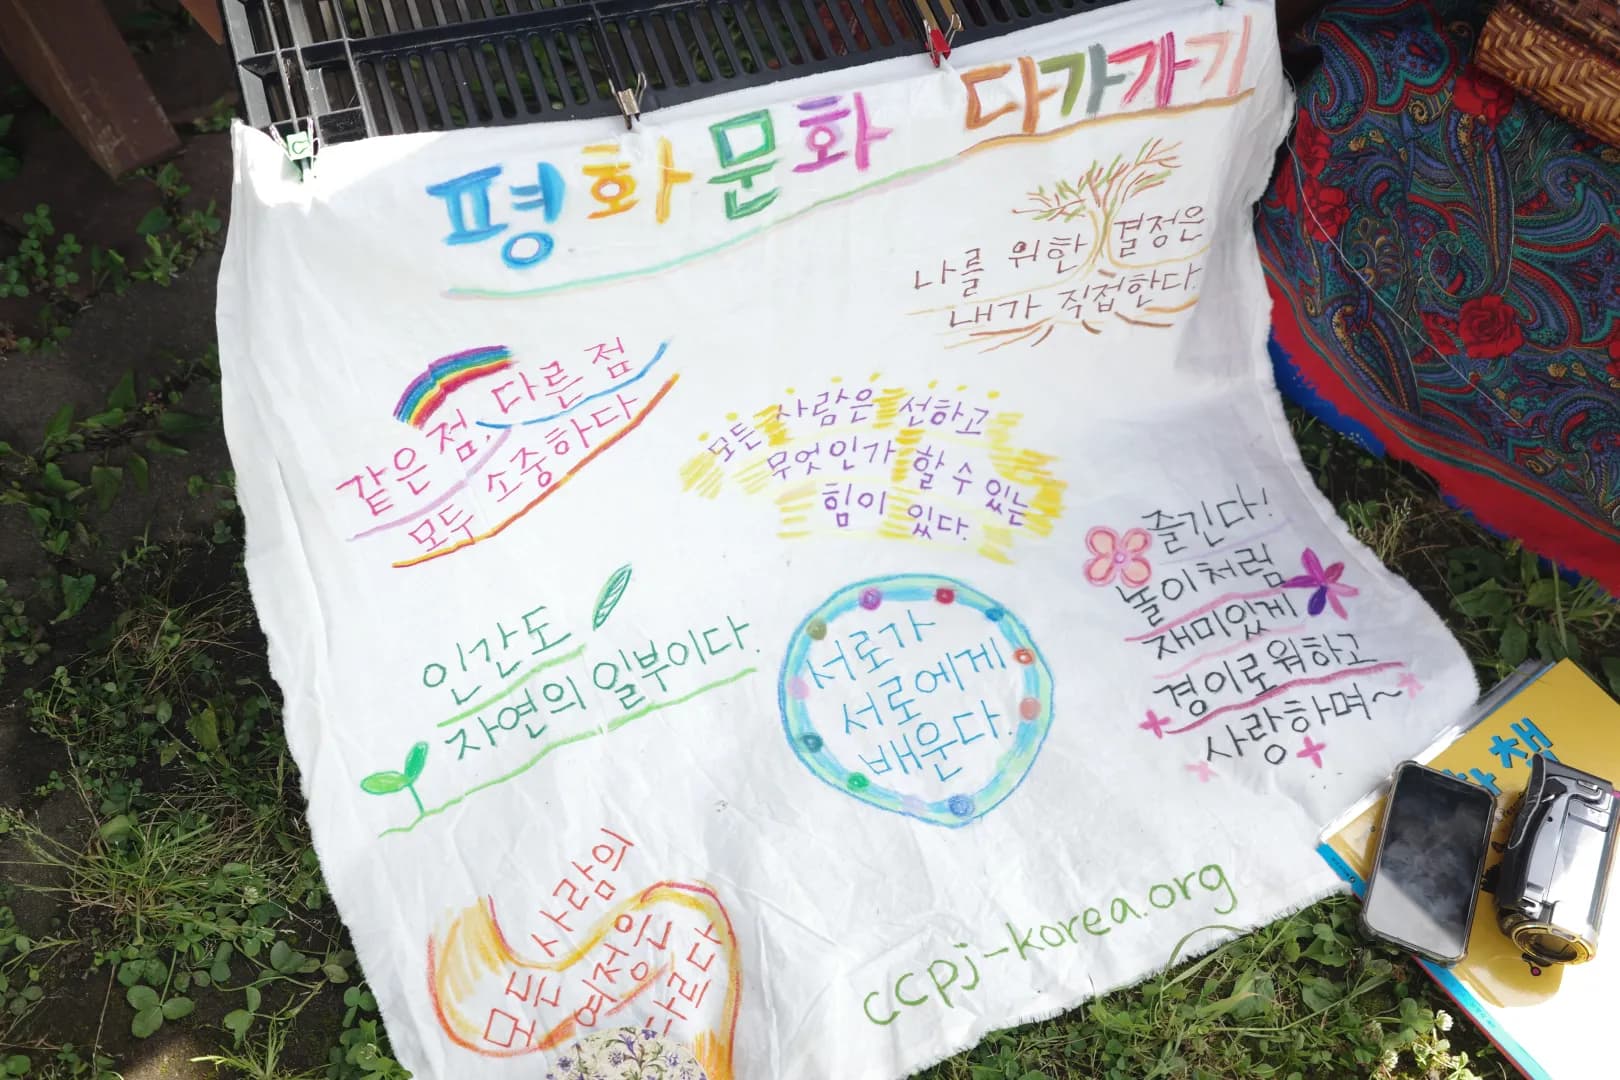 평화 문화 다가가기
나를 위한 결정은
내가 직접한다.
같은 점, 다른 점
모두 소중하다
모든 사람은 선하고
무엇인가 할 수 있는
힘이 있다.
즐긴다!
놀이처럼
재미있게
경이로워하고
사랑하며~
인간도
자연의 일부이다.
서로가
서로에게
배운다.
모든 사람의
여정은
다르다
ccpj-korea.org